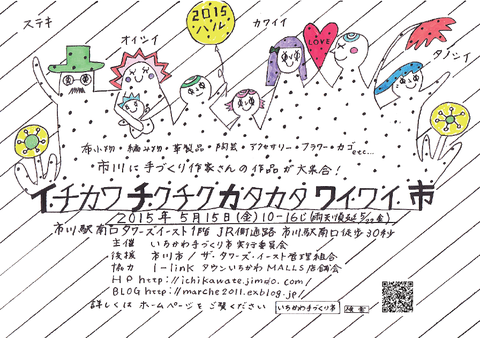 ステキ
オイシイ
2015
ハル
カワイイ
LOVE
タノシイ
布小物・編み物・革製品・陶芸・アクセサリー・フラワー・カゴ etc...
市川に手づくり作家さんの作品が大集合!
イ・チカワ チクチク カタカタ ワイ・ワイ・市
2015年5月15日(金)10-16じ(雨天順延5/22金)
市川駅南口タワーズイースト1階 JR側通路 市川駅南口徒歩30秒
主催 いちかわ手づくり市実行委員会
後援 市川市/ザ・タワーズ・イースト管理組合
協力 I-linkタウンいちかわMALLS店舗会
HP http://ichikawate.jimdo.com/
BLOG http://marche2011.exblog.jp/
詳しくは ホームページをご覧ください いちかわ手づくり市 検索